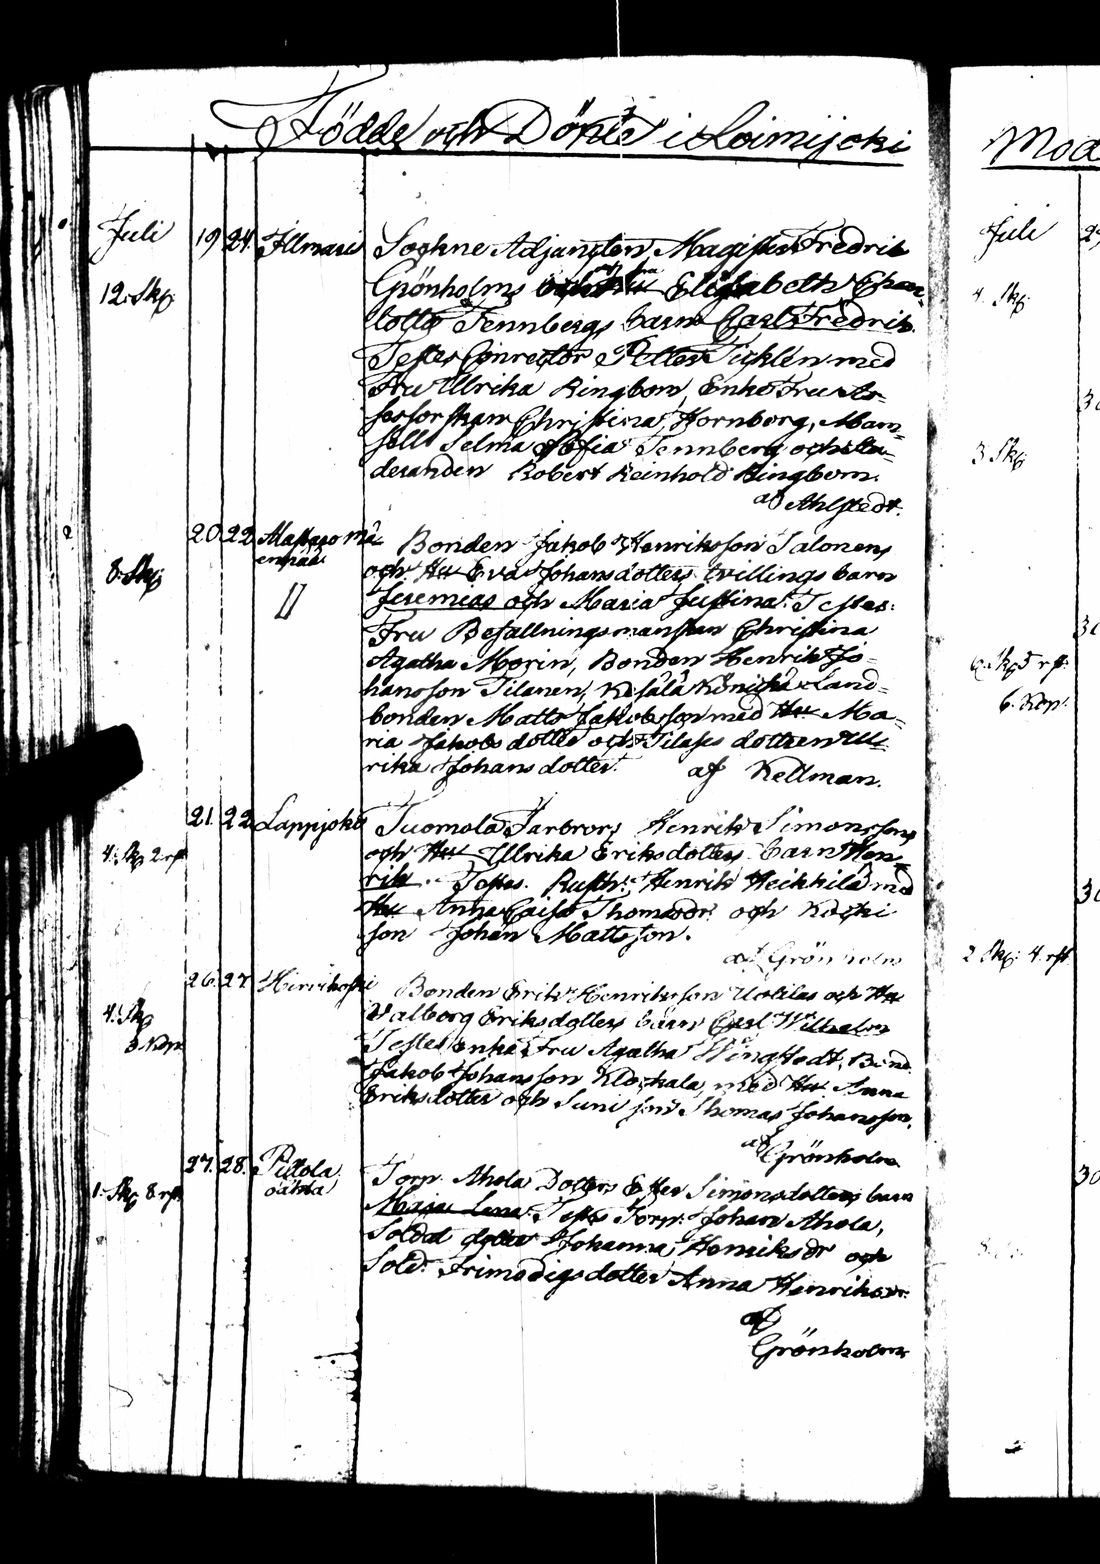 Födde och Döpte i Loimijoki
Juli 19 24 Illmari Sockne Adjuncten Magister Fredric
12. Skp. Grönholms Elisabeth Char-
lotta Tennbergs barn Carl Fredrik.
Testes Conrector Petter Ticklén med
Fru Ullrika Ringbom, Enke Fru As-
sessorskan Christina Hornborg, Mam-
sell Selma Sofia Tennberg och Stu-
deranden Robert Reinhold Ringbom.
af Ahlstedt.
20. 22 Bonden Jakob Henriksson Salonens
8. Skp. och Hu Eva Johansdotters tvillings barn
Jeremias och Maria Justina. Testes:
Fru Befallningsmanskan Christina
Agatha Morin, Bonden Henrik Jo-
hansson Tilanen, Land-
bonden Matts Jakobsson med Hu Ma-
ria Jakobsdotter och dottren Ull-
rika Johansdotter. af Kellman.
21. 22 Lappjoki Tuomola Farbrors Henrik Simonssons
4. Skp 2 rft och Hu Ullrika Eriksdotters barn Hen-
rik. Testes. Rusth. Henrik Heikkilä med
Hu Anna Caisa Thomasdr. och
son Johan Mattsson.
af Grönholm
26. 27. Hirvikoski Bonden Erik Henriksson Uotilas och Hu
4. Skp Valborg Eriksdotters barn Carl Wilhelm
Testes enke Fru Agatha Wingstedt, Bond.
Jakob Johansson Klockala, med Hu Anna
Eriksdotter och Thomas Johansson.
af Grönholm
27. 28. Torp. Ahola Dotters Ester Simonsdotters barn
1. Skp 8 rft. Maja Lena. Testes Torp. Johan Ahola,
Soldat dotter Johanna Henriksdr och
Sold. Frimodigs dotter Anna Henriksdr.
af
Grönholm
Juli
4. Skp.
3 Skp
6. Skp 5 rft.
6. Kop.
2 Skp: 4. rft.